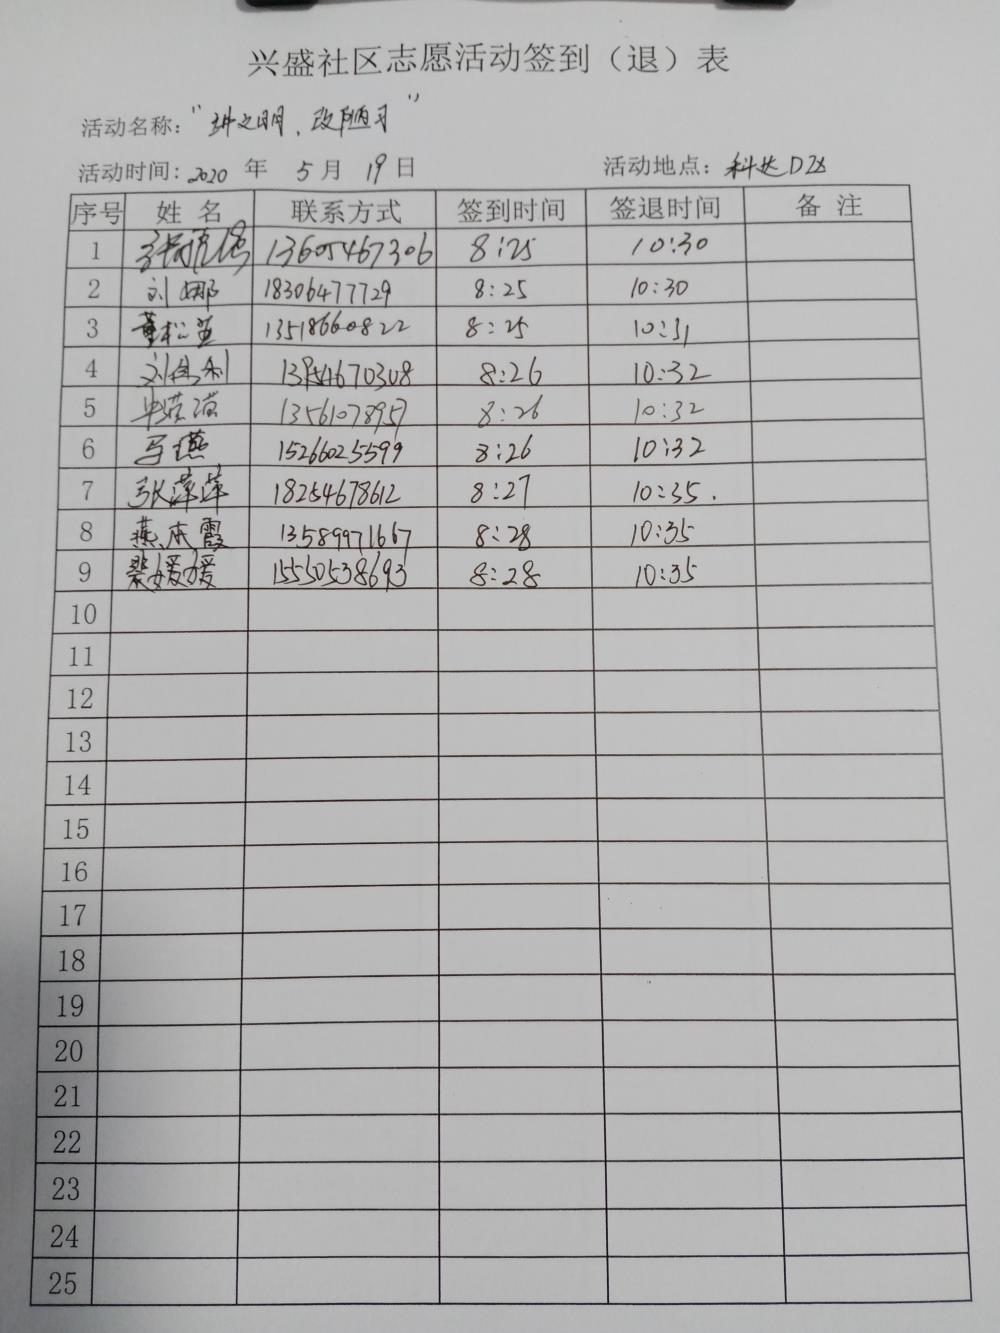 兴盛社区志愿活动签到（退）表
活动名称：“讲文明，改陋习”
活动时间：2020 年 5 月 19 日 活动地点：科达D区
序号 姓 名 联系方式 签到时间 签退时间 备 注
1 13605467306 8:25 10:30
2 刘娜 18306477729 8:25 10:30
3 13518660822 8:25 10:31
4 13954670308 8:26 10:32
5 8:26 10:32
6 马燕 15266025599 8:26 10:32
7 张萍萍 18254678612 8:27 10:35.
8 燕本霞 13589971667 8:28 10:35
9 裴媛媛 15550538693 8:28 10:35
10
11
12
13
14
15
16
17
18
19
20
21
22
23
24
25